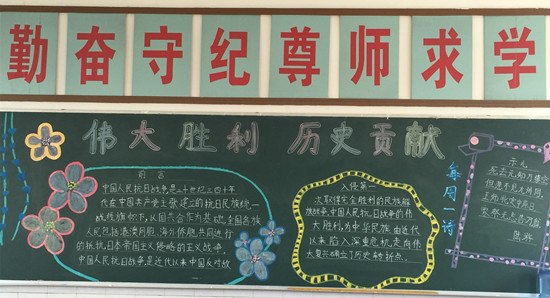 勤奋守纪尊师求学
伟大胜利 历史贡献
前言
中国人民抗日战争是二十世纪三四十年
代在中国共产党主张建立的抗日民族统一
战线旗帜下,以国共合作为基础,全国各族
人民包括港澳同胞、海外侨胞共同进行
的抵抗日本帝国主义侵略的正义战争。
中国人民抗日战争,是近代以来中国反对敌
一次取得完全胜利的民族解
放战争,中国人民抗日战争的伟
大胜利,为中华民族由近代
以来陷入深重危机走向伟
大复兴确立了历史转折点。
每周一诗
示儿
死去元知万事空
但悲不见九州同
王师北定中原日
家祭无忘告乃翁
陆游